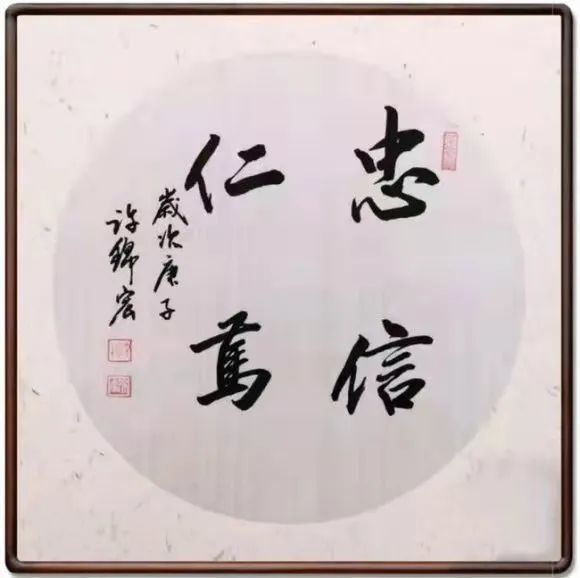 忠信
仁篤
歲次庚子
許錦宏